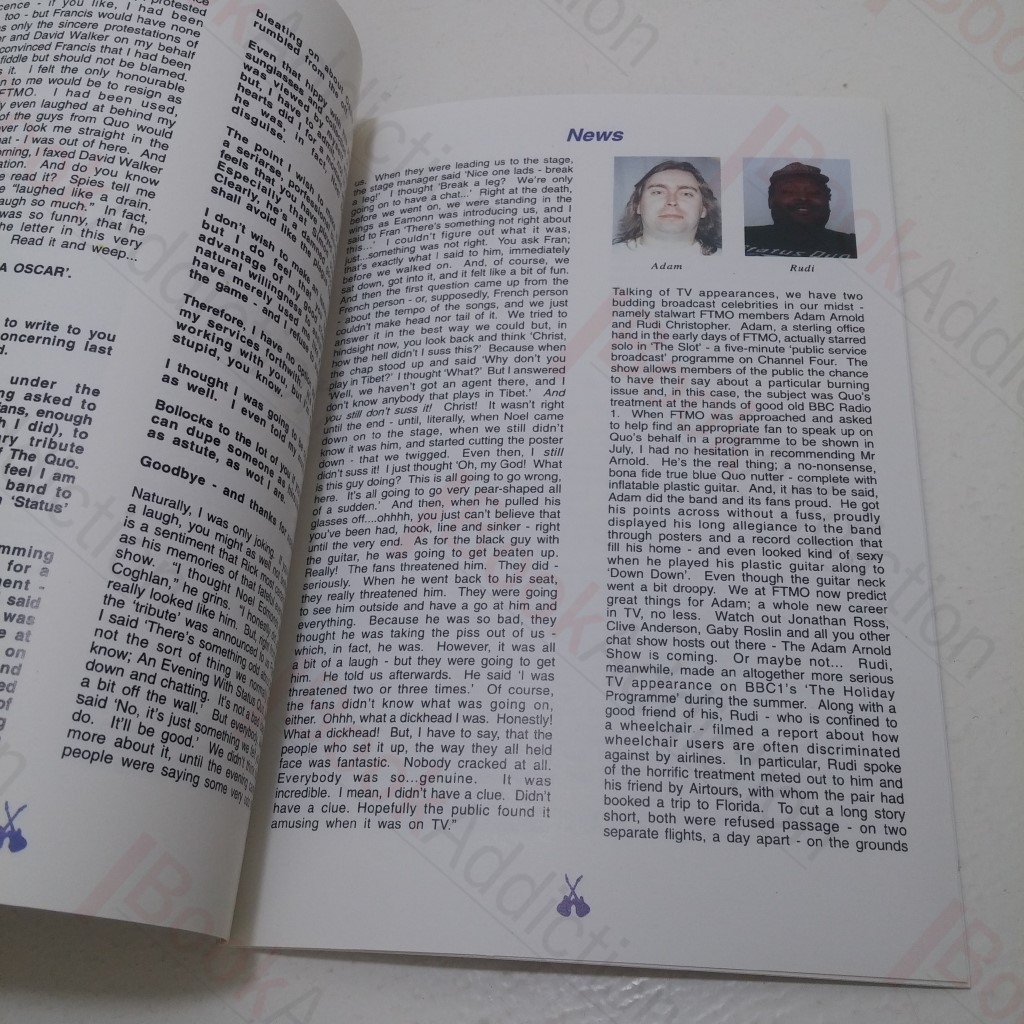 cence - if you like, I had been
too - but Francis would have none
s only the sincere protestations of
er and David Walker on my behalf
convinced Francis that I had been
fiddle but should not be blamed.
s it. I felt the only honourable
n to me would be to resign as
FTMO. I had been used,
y even laughed at behind my
of the guys from Quo would
ver look me straight in the
hat - I was out of here. And
orning, I faxed David Walker
ation. And do you know
e read it? Spies tell me
e "laughed like a drain.
augh so much." In fact,
was so funny, that he
he letter in this very
Read it and weep...
A OSCAR'.
to write to you
concerning last
d.
under the
ng asked to
fans, enough
h I did), to
ary tribute
f The Quo.
feel I am
band to
'Status'
mming
for a
ent -
said
was
e at
on
nd
ed
of
g
bleating on about
rumbled from the
Even that hippy
sunglasses and
was viewed by
but, I have to admit,
hearts did I for
he was. In fact,
disguise.
The point I wish to
a serious, professional
feels that you have
Especially that
Clearly, he's a
shall avoid like the plague
I don't wish to make
but I do feel that
advantage of my good
natural willingness
have merely used me
the game - and I refuse to
Therefore, I have no option
my services forthwith.
working with you, but
stupid, you know.
I thought I was going to
as well. I even told my
Bollocks to the lot of you
can dupe someone as
as astute, as wot I are.
Goodbye - and thanks for
Naturally, I was only joking.
a laugh, you might as well
is a sentiment that Rick most
as his memories of that fateful
show. "I thought Noel Edmonds
Coghlan," he grins. "I honestly
really looked like him. But, right
the 'tribute' was announced to
I said 'There's something odd
not the sort of thing we normally
know; An Evening With Status Quo
down and chatting. It's not a bad
a bit off the wall.' But everybody
said 'No, it's just something we
do. It'll be good.' We didn't think
more about it, until the evening came
people were saying some very
News
us. When they were leading us to the stage,
the stage manager said 'Nice one lads - break
a leg!' I thought 'Break a leg? We're only
going on to have a chat...' Right at the death,
before we went on, we were standing in the
wings as Eamonn was introducing us, and I
said to Fran 'There's something not right about
this...' I couldn't figure out what it was,
just...something was not right. You ask Fran;
that's exactly what I said to him, immediately
before we walked on. And, of course, we
sat down, got into it, and it felt like a bit of fun.
And then the first question came up from the
French person - or, supposedly, French person
- about the tempo of the songs, and we just
couldn't make head nor tail of it. We tried to
answer it in the best way we could but, in
hindsight now, you look back and think 'Christ,
how the hell didn't I suss this?' Because when
the chap stood up and said 'Why don't you
play in Tibet?' I thought 'What?' But I answered
'Well, we haven't got an agent there, and I
don't know anybody that plays in Tibet.' And
you still don't suss it! Christ! It wasn't right
until the end - until, literally, when Noel came
down on to the stage, when we still didn't
know it was him, and started cutting the poster
down - that we twigged. Even then, I still
didn't suss it! I just thought 'Oh, my God! What
is this guy doing? This is all going to go wrong,
here. It's all going to go very pear-shaped all
of a sudden.' And then, when he pulled his
glasses off....ohhhh, you just can't believe that
you've been had, hook, line and sinker - right
until the very end. As for the black guy with
the guitar, he was going to get beaten up.
Really! The fans threatened him. They did -
seriously. When he went back to his seat,
they really threatened him. They were going
to see him outside and have a go at him and
everything. Because he was so bad, they
thought he was taking the piss out of us -
which, in fact, he was. However, it was all
a bit of a laugh - but they were going to get
him. He told us afterwards. He said 'I was
threatened two or three times.' Of course,
the fans didn't know what was going on,
either. Ohhh, what a dickhead I was. Honestly!
What a dickhead! But, I have to say, that the
people who set it up, the way they all held
face was fantastic. Nobody cracked at all.
Everybody was so...genuine. It was
incredible. I mean, I didn't have a clue. Didn't
have a clue. Hopefully the public found it
amusing when it was on TV."
Adam
Rudi
Talking of TV appearances, we have two
budding broadcast celebrities in our midst -
namely stalwart FTMO members Adam Arnold
and Rudi Christopher. Adam, a sterling office
hand in the early days of FTMO, actually starred
solo in 'The Slot' - a five-minute 'public service
broadcast' programme on Channel Four. The
show allows members of the public the chance
to have their say about a particular burning
issue and, in this case, the subject was Quo's
treatment at the hands of good old BBC Radio
1. When FTMO was approached and asked
to help find an appropriate fan to speak up on
Quo's behalf in a programme to be shown in
July, I had no hesitation in recommending Mr
Arnold. He's the real thing; a no-nonsense,
bona fide true blue Quo nutter - complete with
inflatable plastic guitar. And, it has to be said,
Adam did the band and its fans proud. He got
his points across without a fuss, proudly
displayed his long allegiance to the band
through posters and a record collection that
fill his home - and even looked kind of sexy
when he played his plastic guitar along to
'Down Down'. Even though the guitar neck
went a bit droopy. We at FTMO now predict
great things for Adam; a whole new career
in TV, no less. Watch out Jonathan Ross,
Clive Anderson, Gaby Roslin and all you other
chat show hosts out there - The Adam Arnold
Show is coming. Or maybe not... Rudi,
meanwhile, made an altogether more serious
TV appearance on BBC1's 'The Holiday
Programme' during the summer. Along with a
good friend of his, Rudi - who is confined to
a wheelchair - filmed a report about how
wheelchair users are often discriminated
against by airlines. In particular, Rudi spoke
of the horrific treatment meted out to him and
his friend by Airtours, with whom the pair had
booked a trip to Florida. To cut a long story
short, both were refused passage - on two
separate flights, a day apart - on the grounds